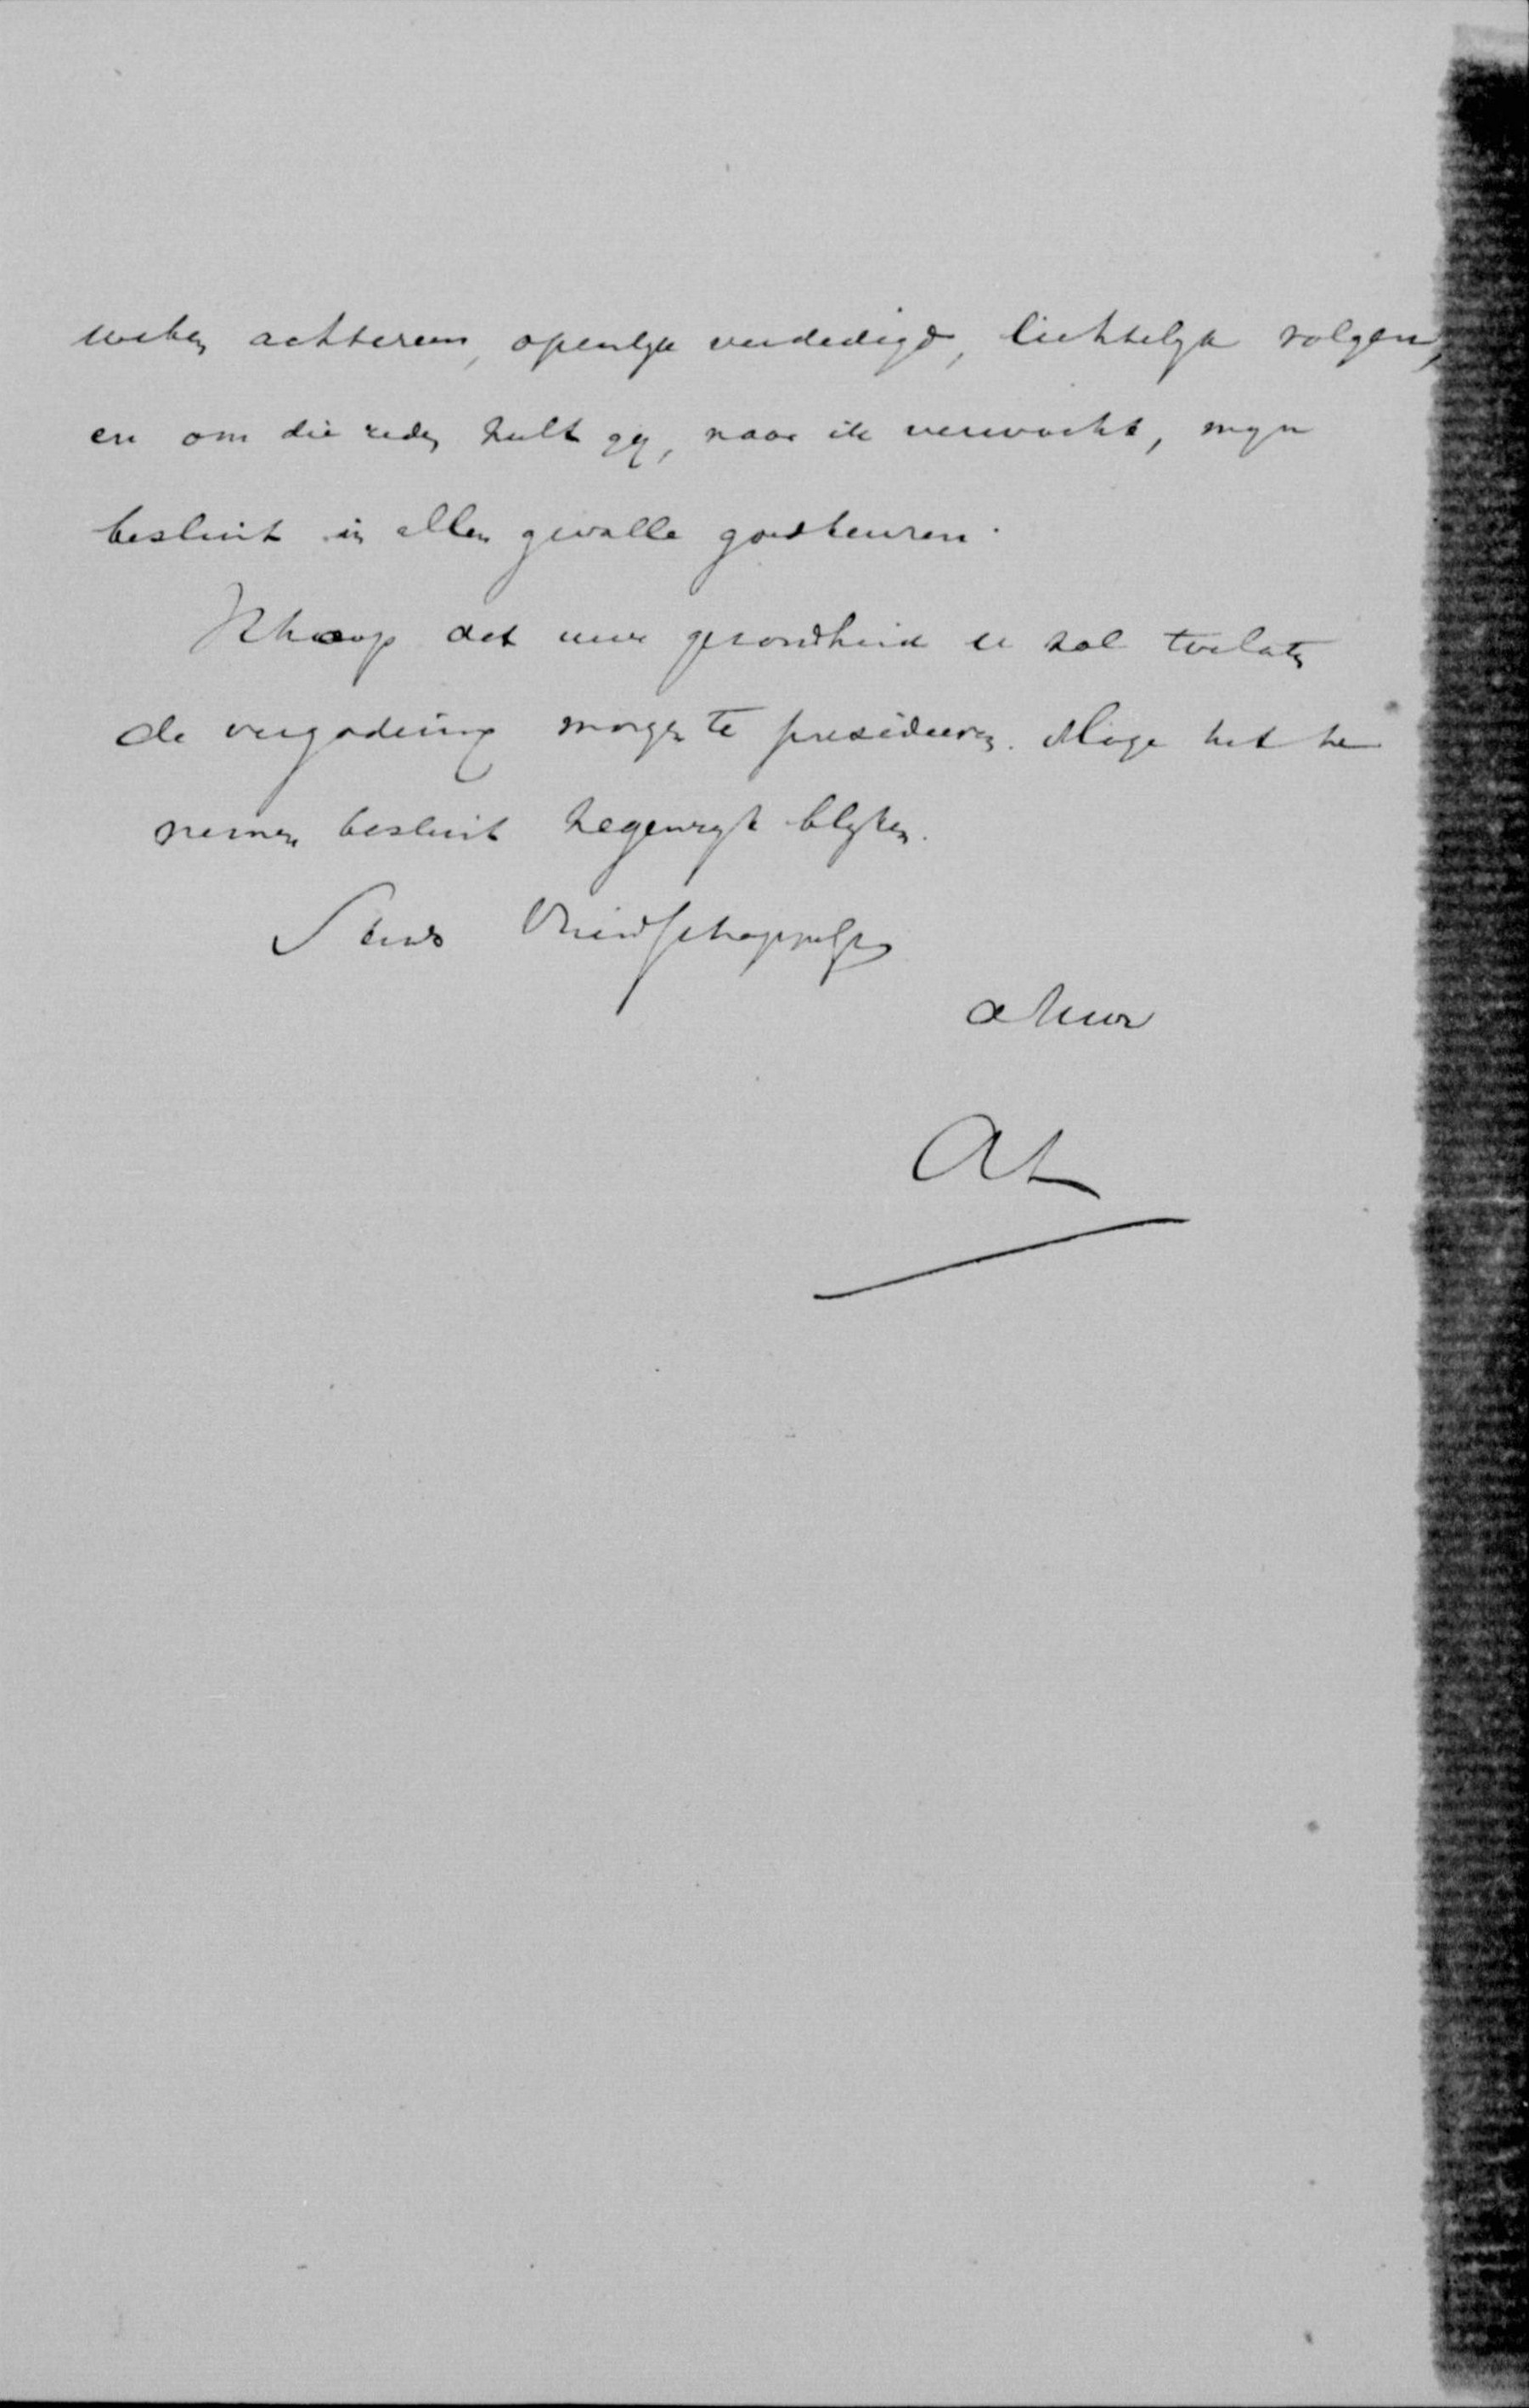 weken achtereen, openlyk verdedigd, lichtelyk volgen,
en om die reden zult gy, naar ik verwacht, myn
besluit in allen gevalle goedkeuren.
Ik hoop dat uwe gezondheid u zal toelaten
de vergadering morgen te presideeren. Moge het te
nemen besluit zegenryk blyken.
Steeds Vriendschappelyk
de Uwe